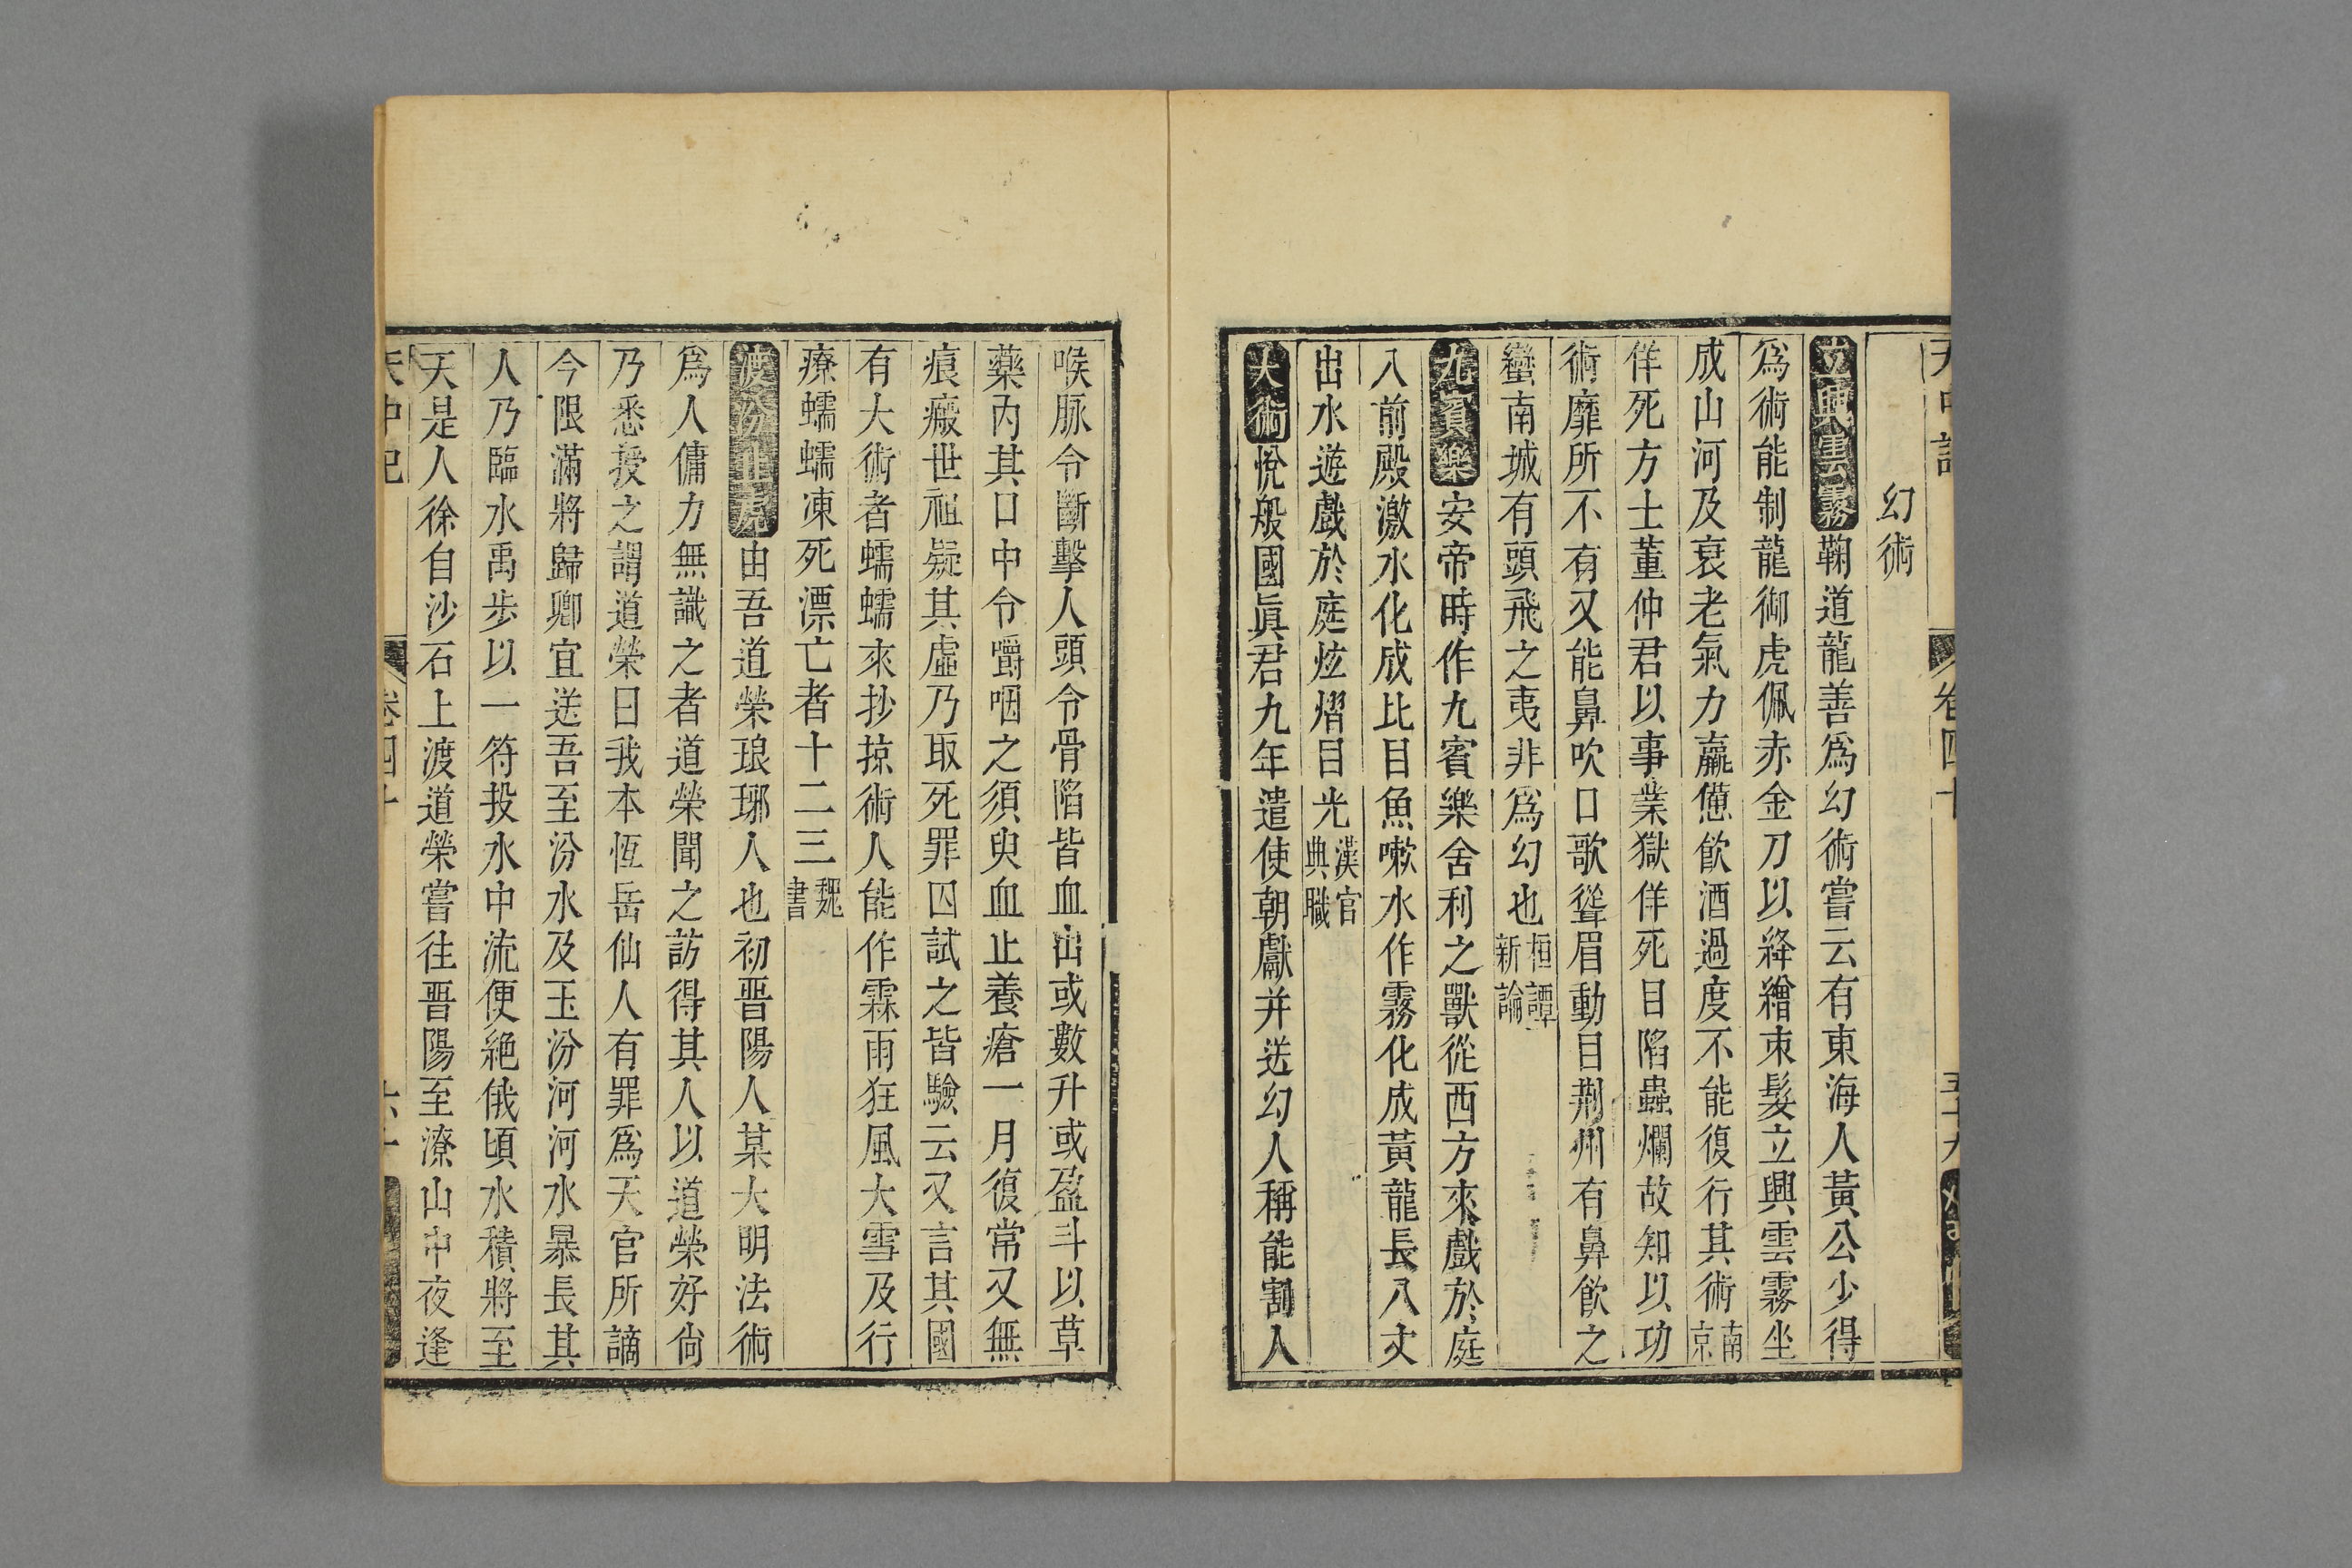 天中記 卷四十 五十九
幻術
立興雲霧鞠道龍善爲幻術嘗云有東海人黃公少得
爲術能制龍御虎佩赤金刀以絳繒束髮立興雲霧坐
成山河及衰老氣力羸憊飲酒過度不能復行其術南京
佯死方士董仲君以事業獄佯死目陷蟲爛故知以功
術靡所不有又能鼻吹口歌聳眉動目荆州有鼻飲之
蠻南城有頭飛之夷非爲幻也桓譚新論
九賓樂安帝時作九賓樂舍利之獸從西方來戲於庭
入前殿激水化成比目魚嗽水作霧化成黃龍長八丈
出水遊戲於庭炫熠目光漢官典職
大術悅般國眞君九年遣使朝獻并送幻人稱能割人
喉脉令斷擊人頭令骨陷皆血出或數升或盈斗以草
藥內其口中令嚼咽之須臾血止養瘡一月復常又無
痕瘢世祖疑其虛乃取死罪囚試之皆驗云又言其國
有大術者蠕蠕來抄掠術人能作霖雨狂風大雪及行
潦蠕蠕凍死漂亡者十二三魏書
渡汾止虎由吾道榮琅琊人也初晋陽人某大明法術
爲人傭力無識之者道榮聞之訪得其人以道榮好尙
乃悉授之謂道榮曰我本恆岳仙人有罪爲天官所謫
今限滿將歸卿宜送吾至汾水及玉汾河河水暴長其
人乃臨水禹步以一符投水中流便絕俄頃水積將至
天是人徐自沙石上渡道榮嘗往晋陽至潦山中夜逢
天中記 卷四十 六十